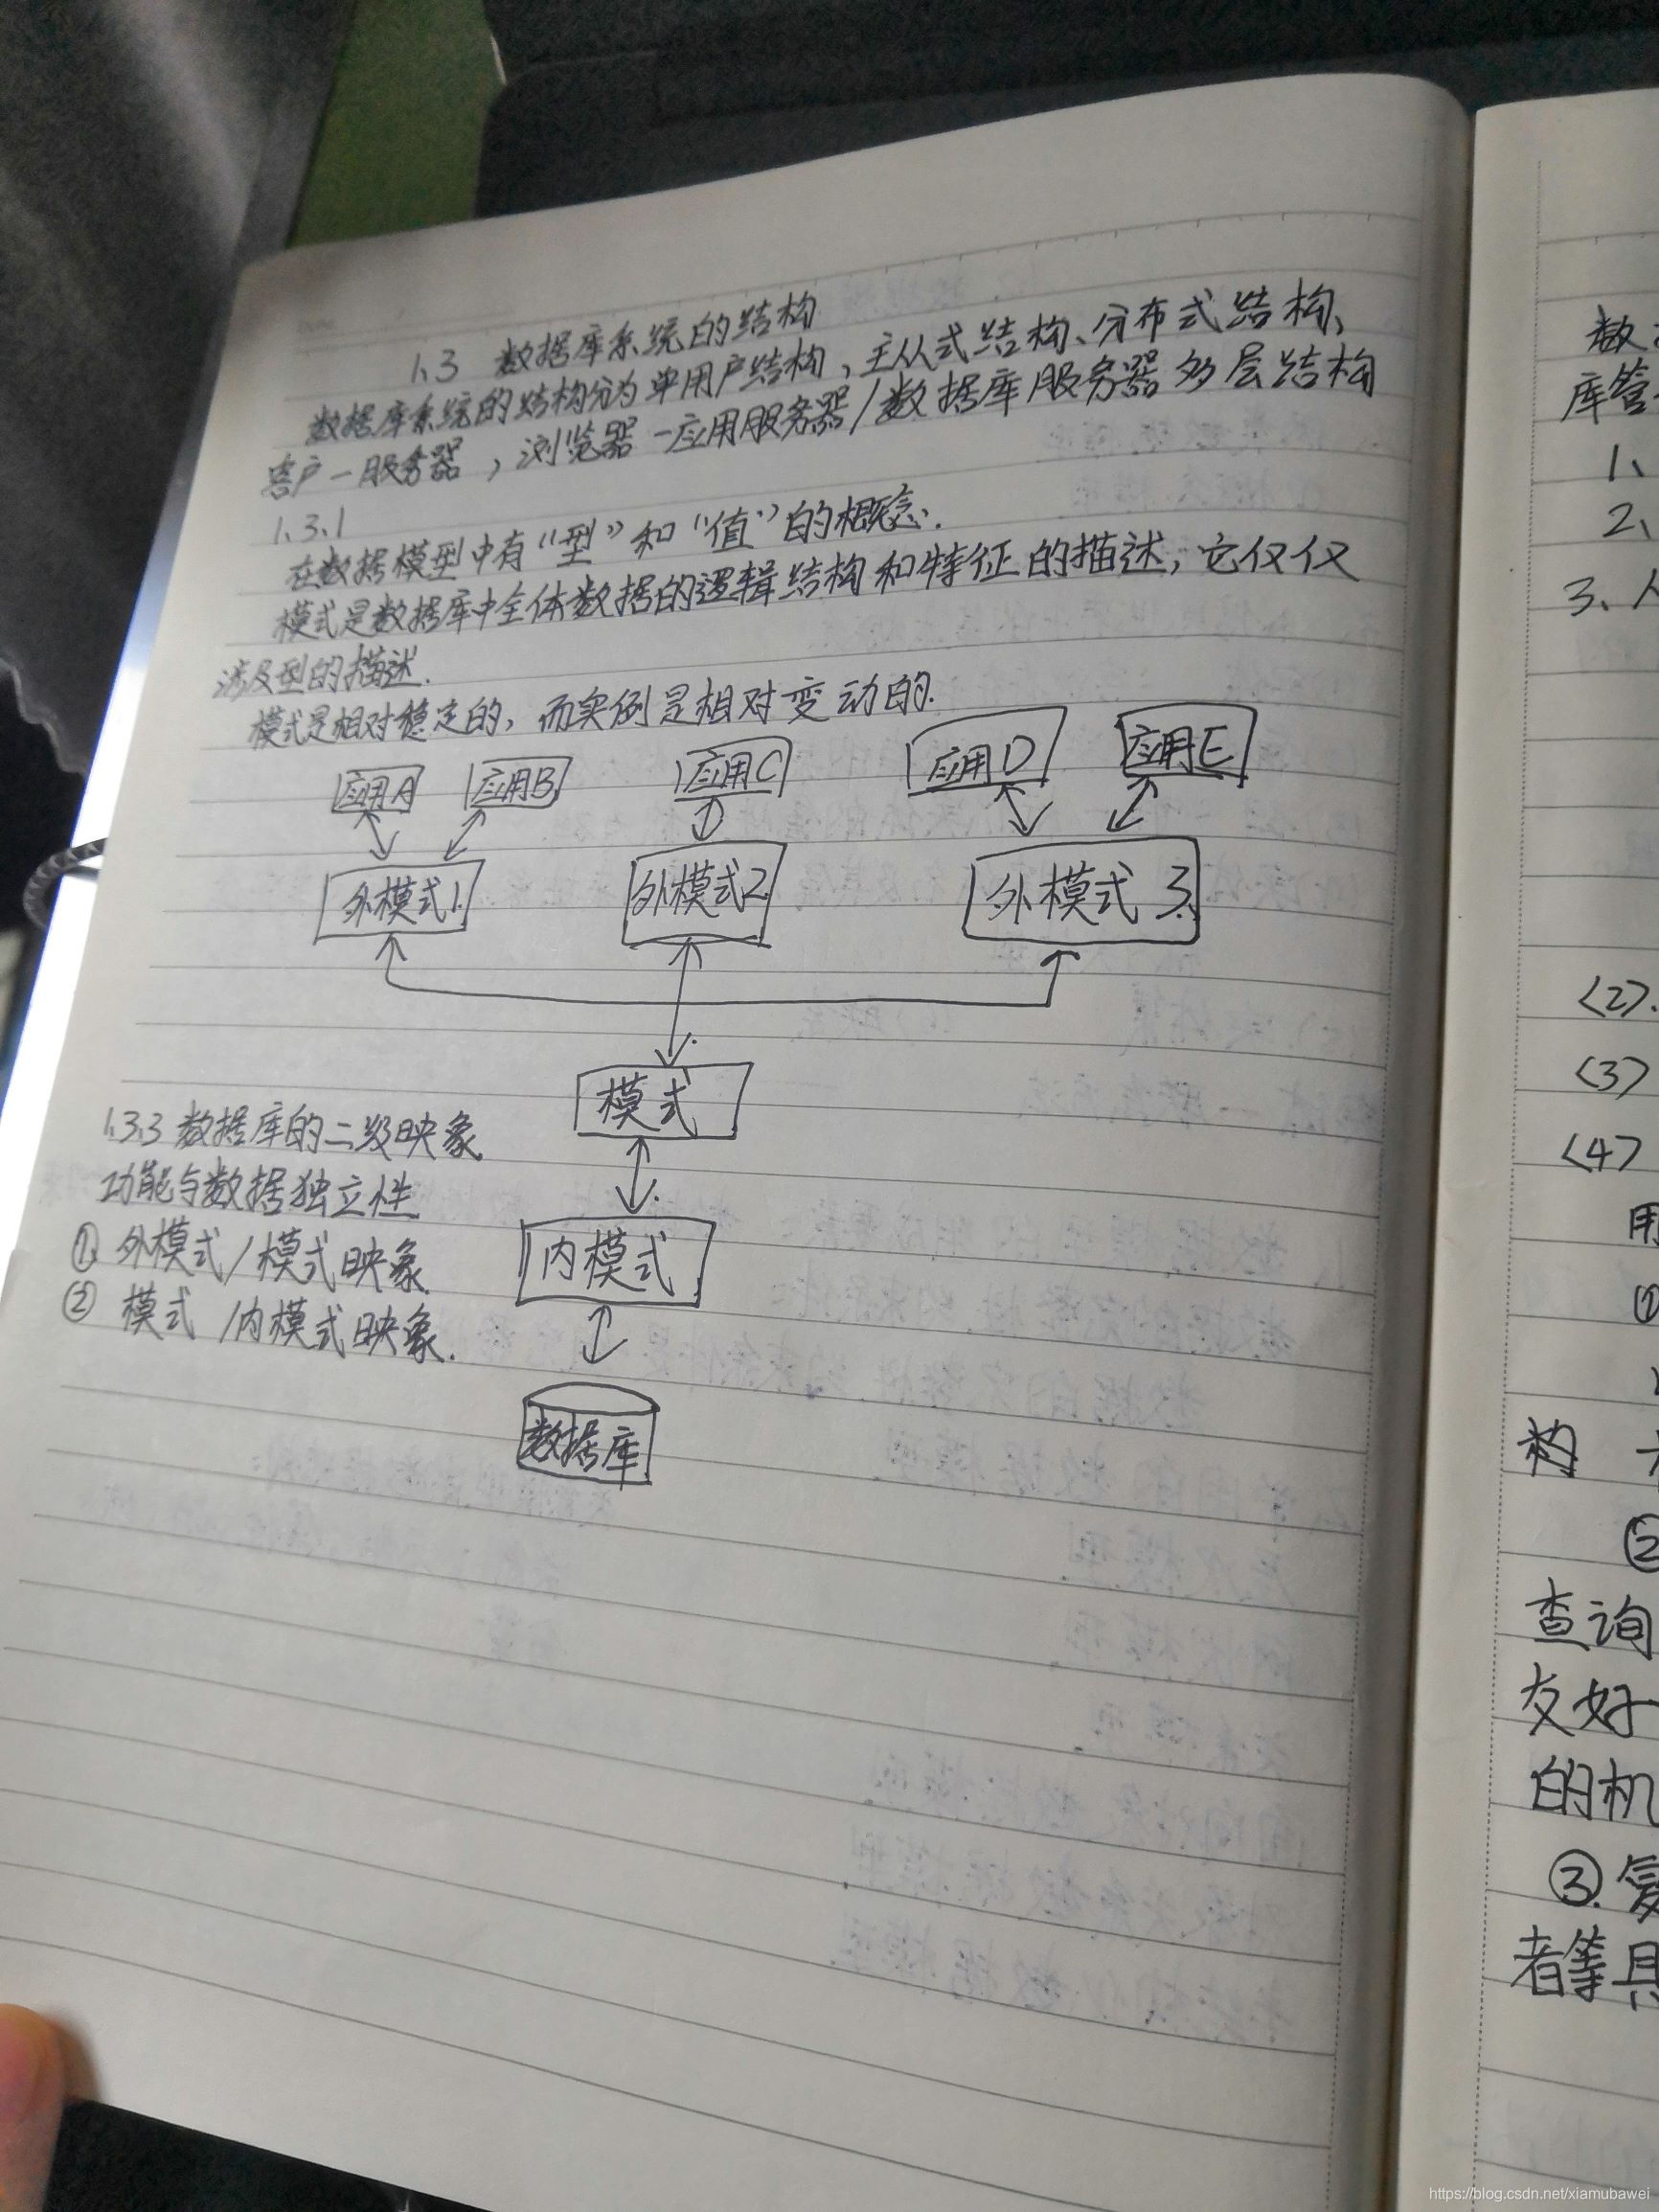 1.3 数据库系统的结构
数据库系统的结构分为单用户结构，主从式结构、分布式结构、
客户-服务器，浏览器-应用服务器/数据库服务器多层结构
1.3.1
在数据模型中有“型”和“值”的概念.
模式是数据库中全体数据的逻辑结构和特征的描述，它仅仅
涉及型的描述.
模式是相对稳定的，而实例是相对变动的.
应用A 应用B 应用C 应用D 应用E
外模式1. 外模式2. 外模式3.
模式
1.3.3 数据库的二级映象
功能与数据独立性
内模式
① 外模式/模式映象
② 模式/内模式映象.
数据库
数
库管
1、
2、
3、
<2>.
<3>
<4>
用
①
构
②
查询
友好
的机
③.
者等具
https://blog.csdn.net/xiamubawei